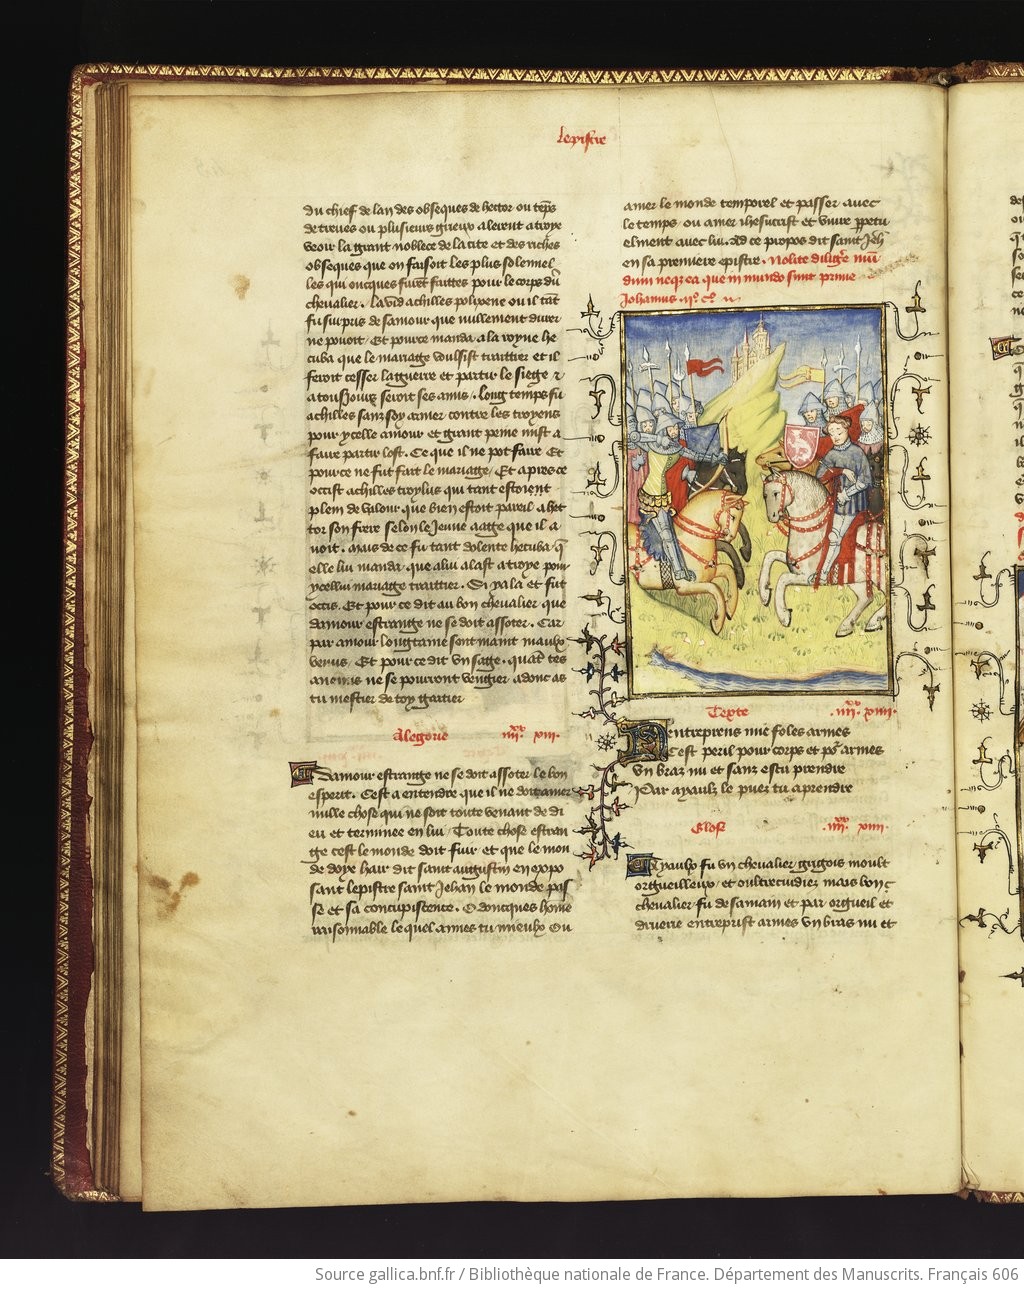 Lepistre
du chief de lan des obseques de hector ou teps
de treues ou plusieurs grieux alerent a troye
veoir la grant noblece de la cite et des riches
obseques que on faisoit les plus solennel
les qui oncques furet faittes pour le corps du
chevalier. La vid achilles polixene ou il fut
fu surpris de samour que nullement durer
ne pouoit. Et pource manda a la royne he
cuba que le mariage voulsist traittier et il
feroit cesser la guerre et partir le siege &
a tousjours seroit ses amis. long temps fu
achilles sanz soy armer contre les troyens
pour ycelle amour et grant peine mist a
faire partir lost. Ce que il ne pot faire Et
pource ne fut fait le mariage. Et apres ce
occist achilles troylus qui tant estoient
plein de valour que bien estoit pareil a hec
tor son frere selon le jeune aage que il a
uoit. mais de ce fu tant dolente hecuba q
elle lui manda que a lui alast a troye pour
ycellui mariage traittier. Si y ala et fut
occis. Et pour ce dit au bon chevalier que
damour estrange ne se doit assoter. Car
par amour longtaine sont maint maulx
venus. Et pour ce dit un sage. quat tes
anemis ne se pourront vengier adonc as
tu mestier de toy gaitier
Alegorie iiii xx xiii.
Damour estrange ne se doit assoter le bon
esperit. Cest a entendre que il ne doit amer
nulle chose qui ne soit toute venant de di
eu et terminee en lui. Toute chose estran
ge cest le monde doit fuir et que le mon
de doye hair dit saint augustin en expo
sant lepistre saint Jehan le monde pas
se et sa concupiscence. O doncques home
raisonnable le quel aimes tu mieulx Ou
amer le monde temporel et passer avec
le temps ou amer ihesucrist et vivre ppetu
elment avec lui. Ad ce propos dit saint Jeh
en sa premiere epistre. Nolite diligere mu
dum neqz ea que in mundo sunt prime
Johannis ii° c° ..
Texte .iiii xx xiiii.
Nentreprens mie foles armes
Cest peril pour corps et po armes
Un braz nu et sanz escu prendre
Par ayaulz le puez tu aprendre
Glose .iiii xx xiiii.
Ayaulx fu un chevalier grigois moult
orgueilleux et oultrecuidiez mais bon
chevalier fu de sa main et par orgueil et
druerie entreprist armes un bras nu et
Source gallica.bnf.fr / Bibliothèque nationale de France. Département des Manuscrits. Français 606